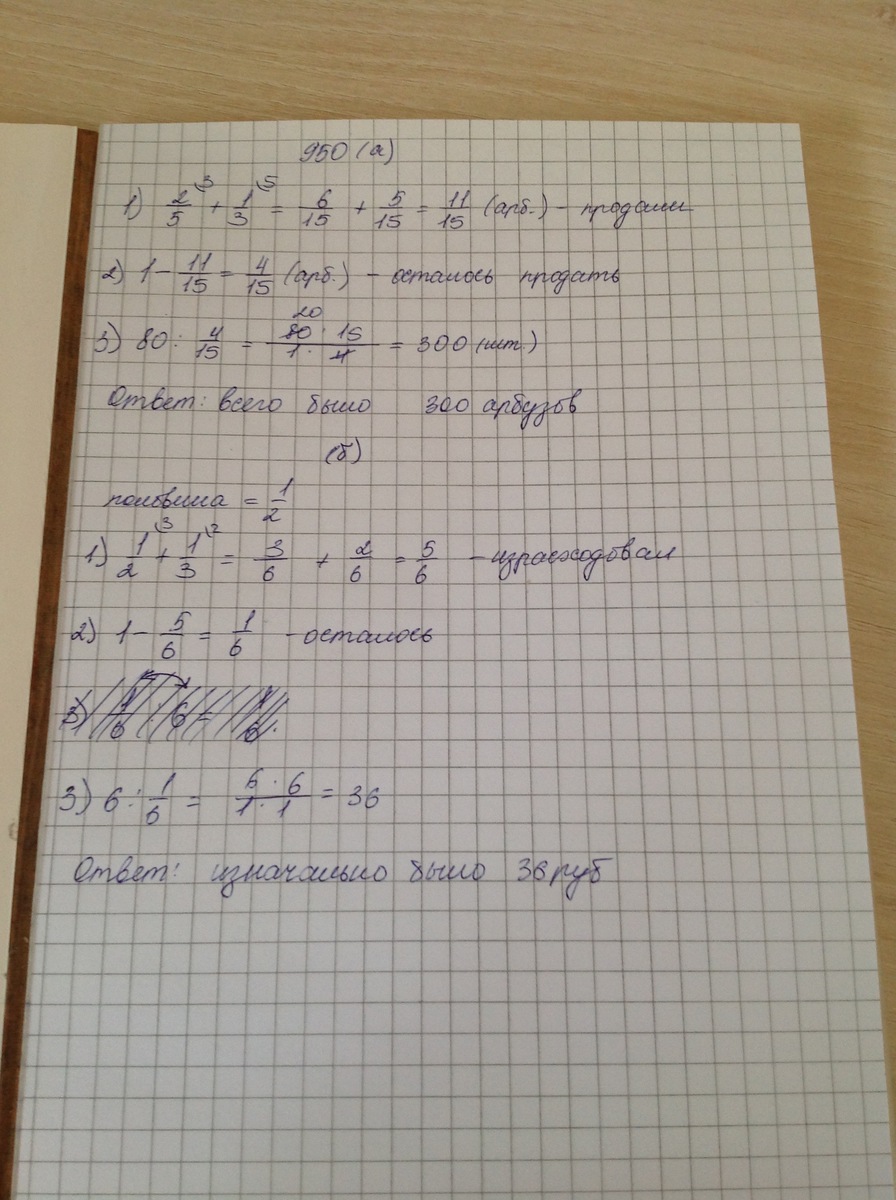 950 (а)
1) 2/5 + 1/3 = 6/15 + 5/15 = 11/15 (арб.) - продали
2) 1 - 11/15 = 4/15 (арб.) - осталось продать
3) 80 : 4/15 = 80 · 15 / 1 · 4 = 300 (шт.)
Ответ: всего было 300 арбузов
(б)
половина = 1/2
1) 1/2 + 1/3 = 3/6 + 2/6 = 5/6 - израсходовал
2) 1 - 5/6 = 1/6 - осталось
3) 6 : 1/6 = 6 · 6 / 1 · 1 = 36
Ответ: изначально было 36 руб